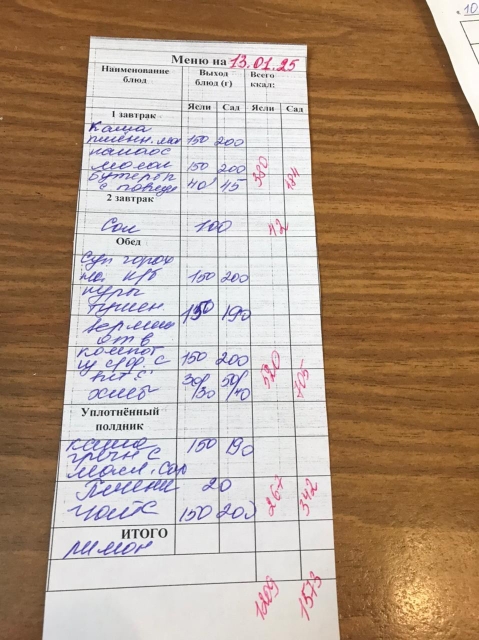 10
Меню на 13.01.25
Наименование блюд Выход блюд (г) Всего ккал:
Ясли Сад Ясли Сад
1 завтрак
Каша
пшенн. мол 150 200
какао с
молок 150 200 380
Бутерб
с повид 40 45
2 завтрак
Сок 100 42
Обед
Суп горох
на к/б 150 200
куры
тушен 150 190
вермиш
отв
компот
из с/ф с 150 200 520 705
вит С
хлеб 30/30 50/40
Уплотнённый полдник
каша 150 190
гречн с
масл, сах
Печень 20 267 342
чай с 150 200
ИТОГО
лимон
1209 1573